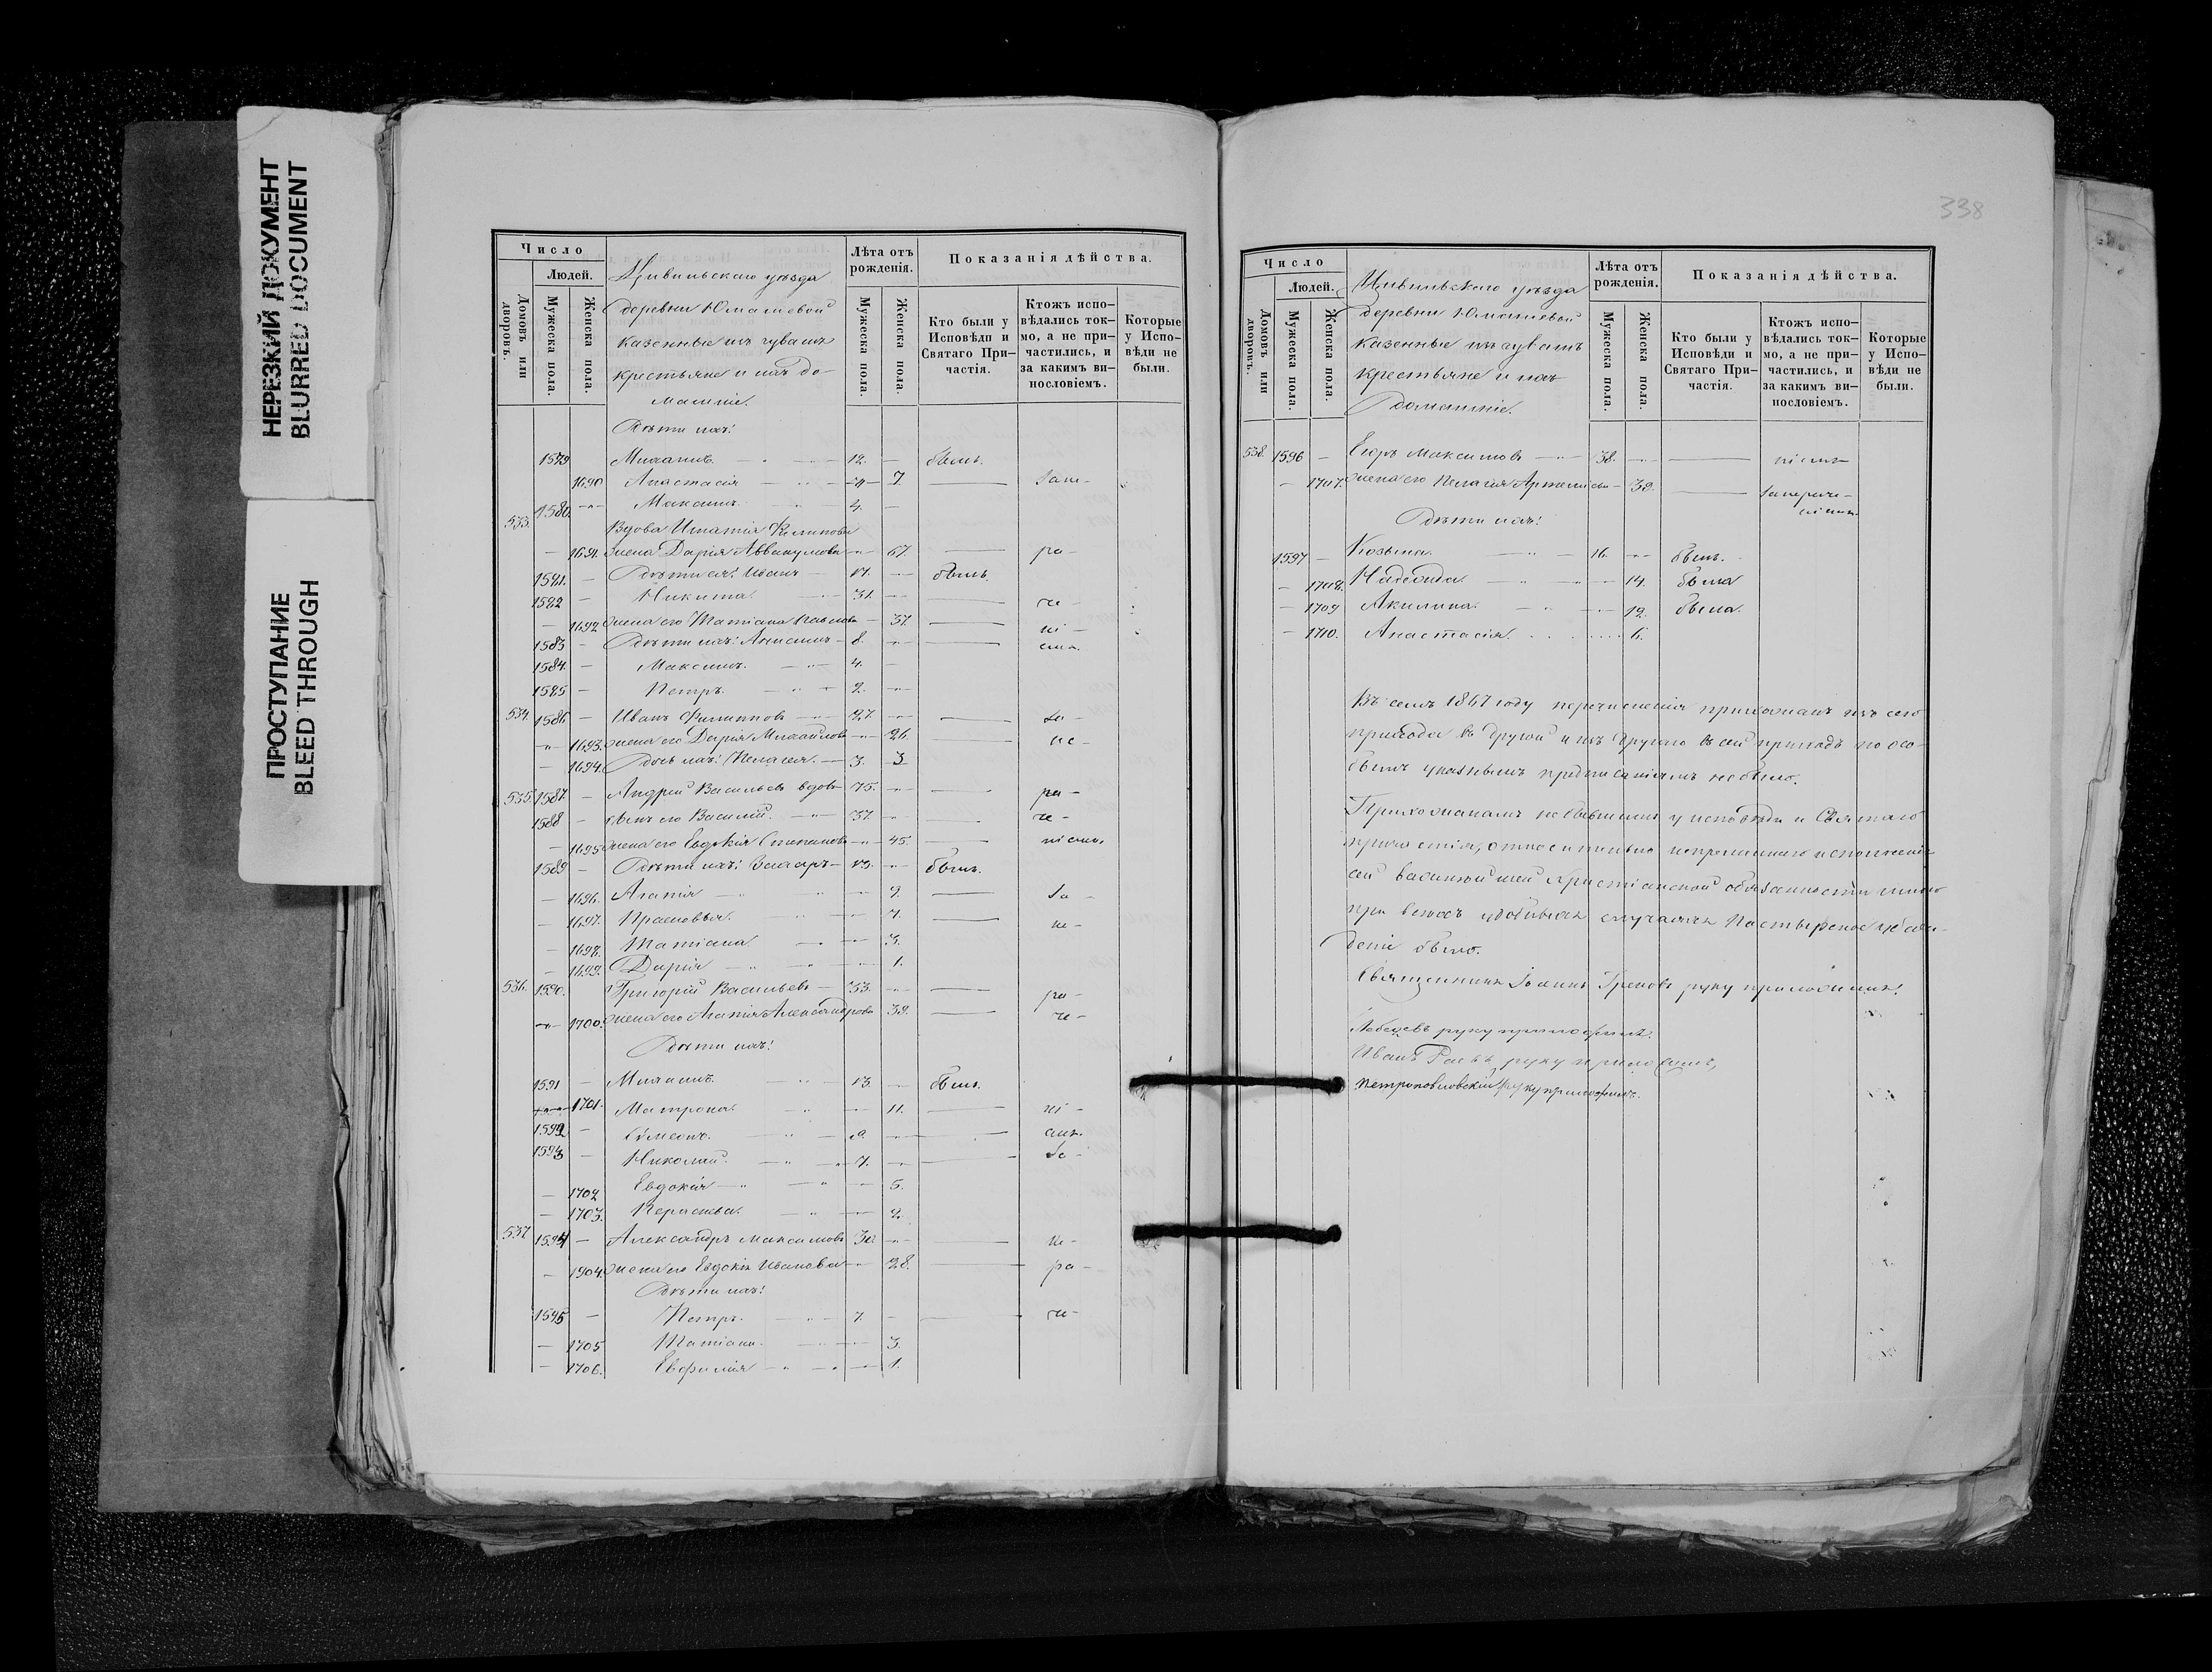 НЕРЕЗКИЙ ДОКУМЕНТ
BLURRED DOCUMENT
ПРОСТУПАНИЕ
BLEED THROUGH
Число
Людей.
Домовъ или дворовъ.
Мужеска пола.
Женска пола.
Цивильскаго уѣзда
деревни Юмашевой
казенные изъ чувашъ
крестьяне и ихъ до-
машніе.
Лѣта отъ рожденія.
Мужеска пола.
Женска пола.
Показанія дѣйства.
Кто были у Исповѣди и Святаго При-частія.
Ктожъ испо-вѣдались ток-мо, а не при-частились, и за какимъ ви-нословіемъ.
Которые у Испо-вѣди не были.
Дѣти ихъ:
1579 Михаилъ 12. былъ.
1690 Анастасія 7. Запе-
1580. Максимъ 4.
533. Вдова Игнатія Филипова
1691. жена Дарія Аввакумова 67. ре-
1581. Дѣти ея: Иванъ 17. былъ.
1582 Никита 31. че-
1692 жена его Татіана Павлова 37. ні-
1583 Дѣти ихъ: Анисимъ 8. емъ.
1584. Максимъ 4.
1585 Петръ 2.
534. 1586 Иванъ Филипповъ 27. За-
1693. жена его Дарія Михайлова 26. пе-
1694. Дочь ихъ: Пелагея 3. 3
535. 1587. Андрей Васильевъ вдовъ 75. ре-
1588 сынъ его Василій 37. че-
1695 жена его Евдокія Степанова 45. ніемъ.
1589 Дѣти ихъ: 13. былъ.
1696. Агапія 9. За-
1697. Прасковья 7. пе-
1698. Татіана 3.
1699. Дарія 1.
536. 1590. Григорій Васильевъ 33. ре-
1700. жена его Агапія Александрова 39. че-
Дѣти ихъ:
1591 Михаилъ 13. былъ.
1701. Матрона 11. ні-
1592 Симеонъ 9. емъ.
1593 Николай 7. За-
1702 Евдокія 5.
1703. Керасивья 2.
537 1594 Александръ Максимовъ 30. пе-
1704. жена его Евдокія Иванова 28. ре-
Дѣти ихъ:
1595 Петръ 7. че-
1705 Татіана 3.
1706. Евфимія 1.
338
Число
Людей.
Домовъ или дворовъ.
Мужеска пола.
Женска пола.
Цивильскаго уѣзда
деревни Юмашевой
казенные изъ чувашъ
крестьяне и ихъ
домашніе.
Лѣта отъ рожденія.
Мужеска пола.
Женска пола.
Показанія дѣйства.
Кто были у Исповѣди и Святаго При-частія.
Ктожъ испо-вѣдались ток-мо, а не при-частились, и за какимъ ви-нословіемъ.
Которые у Испо-вѣди не были.
538. 1596 Егоръ Максимовъ 38. ніемъ
1707. жена его Пелагія 39. Заперече-
ніемъ.
Дѣти ихъ:
1597 Козьма 16. былъ.
1708. Надежда 14. была
1709 Акилина 12. была.
1710. Анастасія 6.
Въ семъ 1867 году перечисленія прихожанъ изъ сего
прихода въ другой и изъ другаго въ сей приходъ по осо-
бымъ указнымъ предписаніямъ не было.
Прихожанамъ не бывшимъ у исповѣди и Святаго
причастія, относительно непремѣннаго исполненія
сей важнѣйшей христіанской обязанности мною
при всѣхъ удобныхъ случаяхъ Пастырское убѣж-
деніе было.
Священникъ Іоаннъ Грековъ руку приложилъ.
Лебедевъ руку приложилъ.
Иванъ руку приложилъ,
Петропавловскій руку приложилъ.